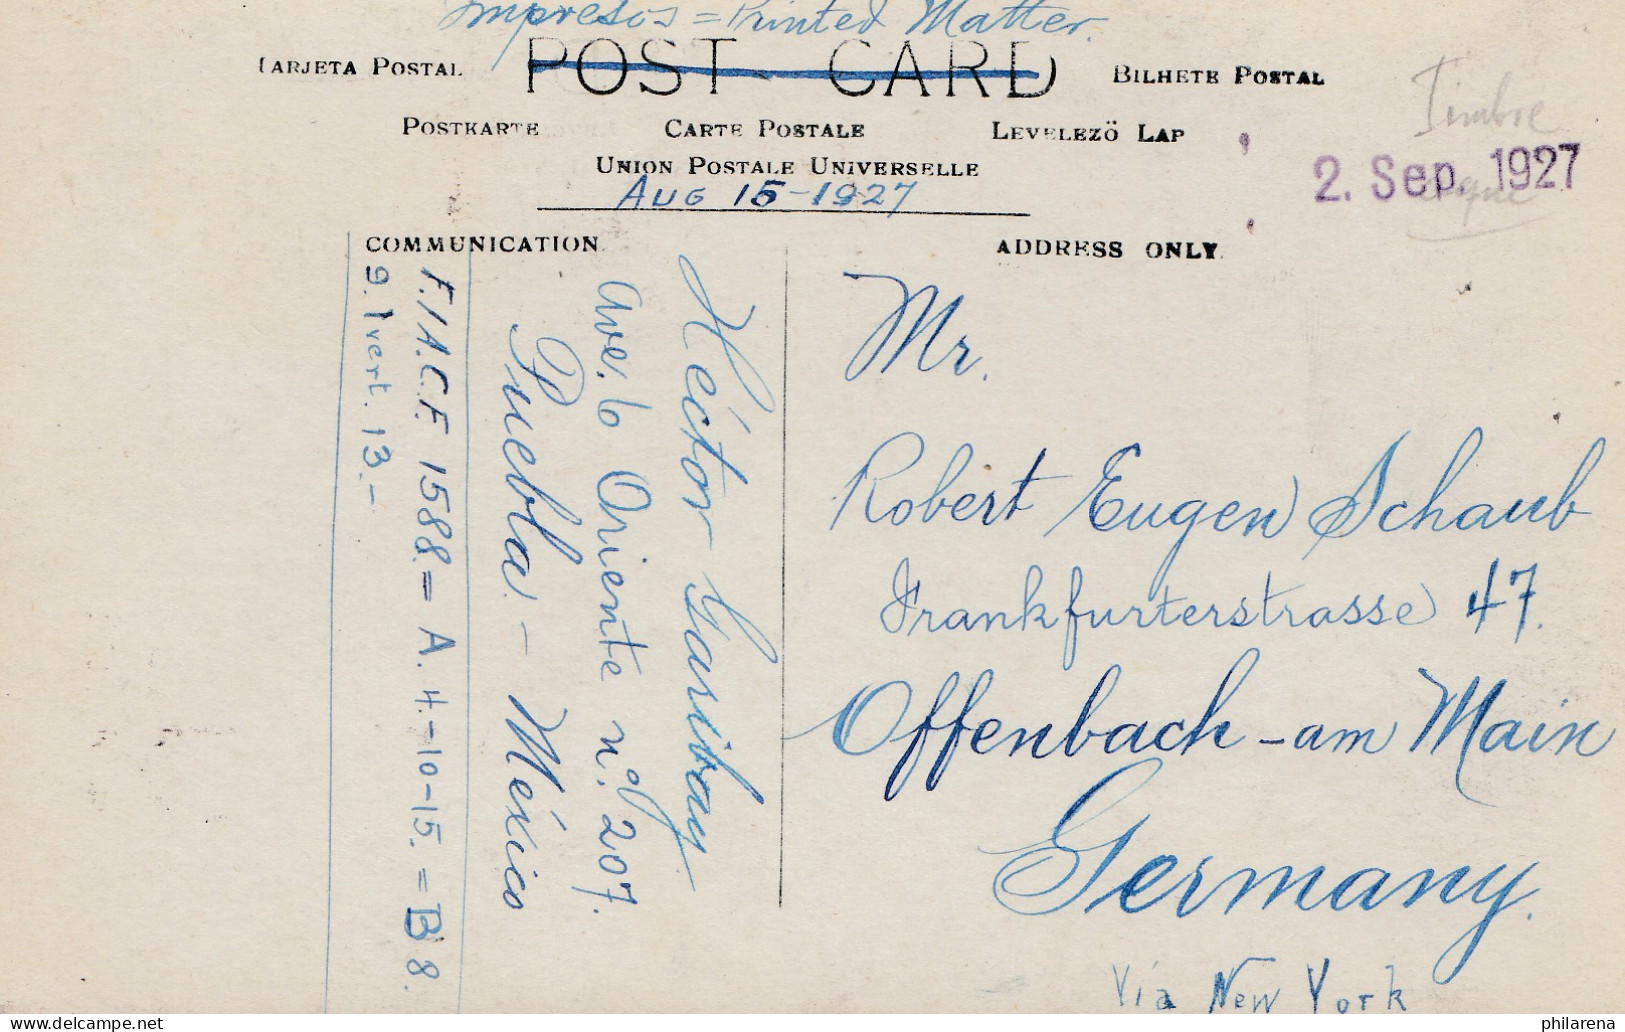 Impresos = Printed Matter.
TARJETA POSTAL
POST CARD
BILHETE POSTAL
Timbre
POSTKARTE
CARTE POSTALE
LEVELEZÖ LAP
UNION POSTALE UNIVERSELLE
2. Sep. 1927
AUG 15-1927
COMMUNICATION.
ADDRESS ONLY.
Héctor Garibay
Ave. 6 Oriente nº. 207.
Puebla - México
F.I.A.C.F. 1588 = A. 4-10-15. = B 8.
9. Ivert. 13.-
Mr.
Robert Eugen Schaub
Frankfurterstrasse 47.
Offenbach - am Main
Germany.
Via New York
philarena